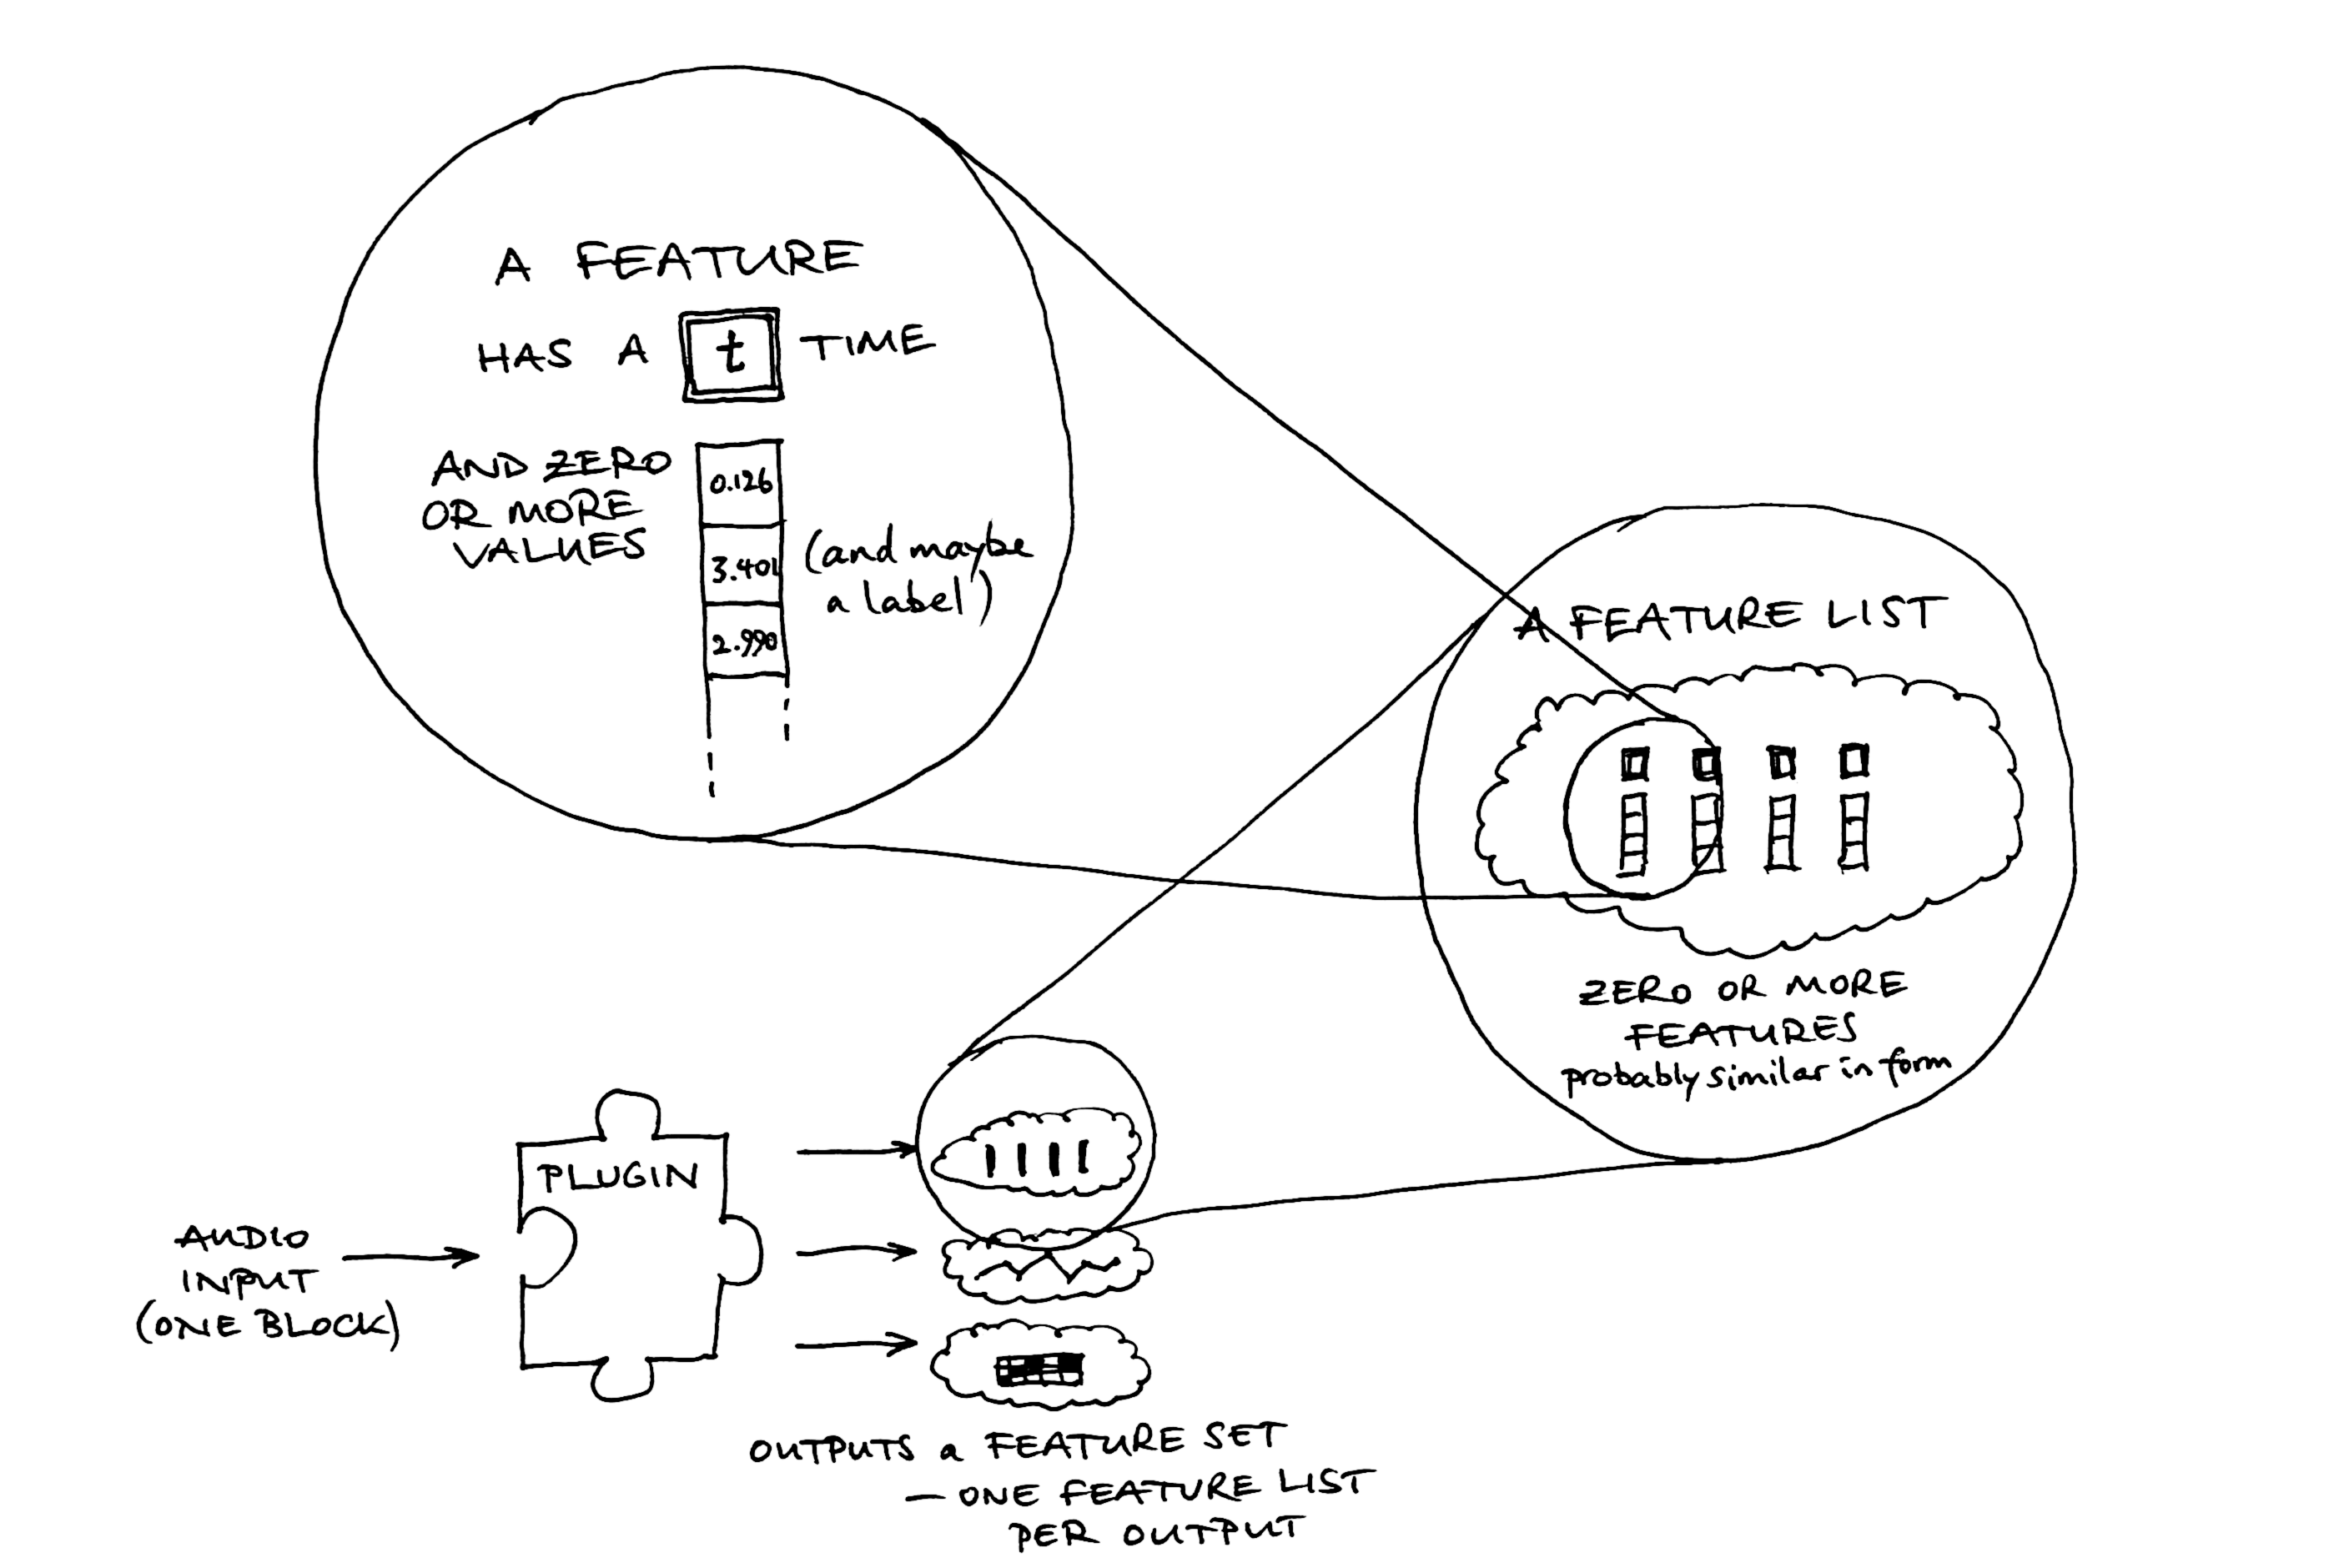 A FEATURE
HAS A t TIME
AND ZERO
OR MORE
VALUES
0.126
3.401
2.990
(and maybe
a label)
A FEATURE LIST
ZERO OR MORE
FEATURES
probably similar in form
PLUGIN
AUDIO
INPUT
(ONE BLOCK)
OUTPUTS a FEATURE SET
— ONE FEATURE LIST
PER OUTPUT